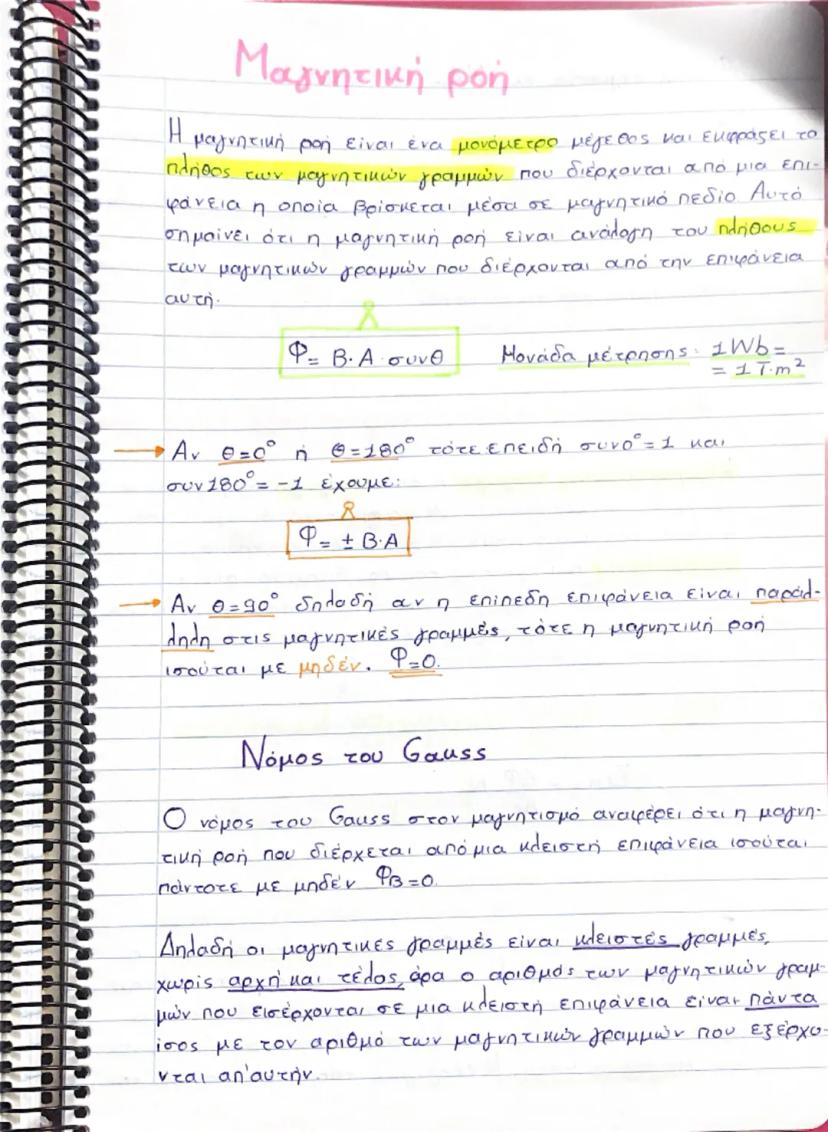 Μαγνητική ροή
Η μαγνητική ροή είναι ένα μονόμετρο μέγεθος και εκφράζει το
πλήθος των μαγνητικών γραμμών που διέρχονται από μια επι-
φάνεια η οποία βρίσκεται μέσα σε μαγνητικό πεδίο Αυτό
σημαίνει ότι η μαγνητική ροή είναι ανάλογη του πλήθους
των μαγνητικών γραμμών που διέρχονται από την επιφάνεια
αυτή.
Φ= B·A·συνθ Μονάδα μέτρησης: 1Wb=
= 1 T·m²
→ Αν θ=0° ή θ=180° τότε επειδή συν0°=1 και
συν180°= -1 έχουμε:
Φ= ± B·A
→ Αν θ=90° δηλαδή αν η επίπεδη επιφάνεια είναι παράλ-
ληλη στις μαγνητικές γραμμές, τότε η μαγνητική ροή
ισούται με μηδέν. Φ=0.
Νόμος του Gauss
Ο νόμος του Gauss στον μαγνητισμό αναφέρει ότι η μαγνη-
τική ροή που διέρχεται από μια κλειστή επιφάνεια ισούται
πάντοτε με μηδέν ΦB=0.
Δηλαδή οι μαγνητικές γραμμές είναι κλειστές γραμμές,
χωρίς αρχή και τέλος, άρα ο αριθμός των μαγνητικών γραμ-
μών που εισέρχονται σε μια κλειστή επιφάνεια είναι πάντα
ίσος με τον αριθμό των μαγνητικών γραμμών που εξέρχο-
νται απ'αυτήν.